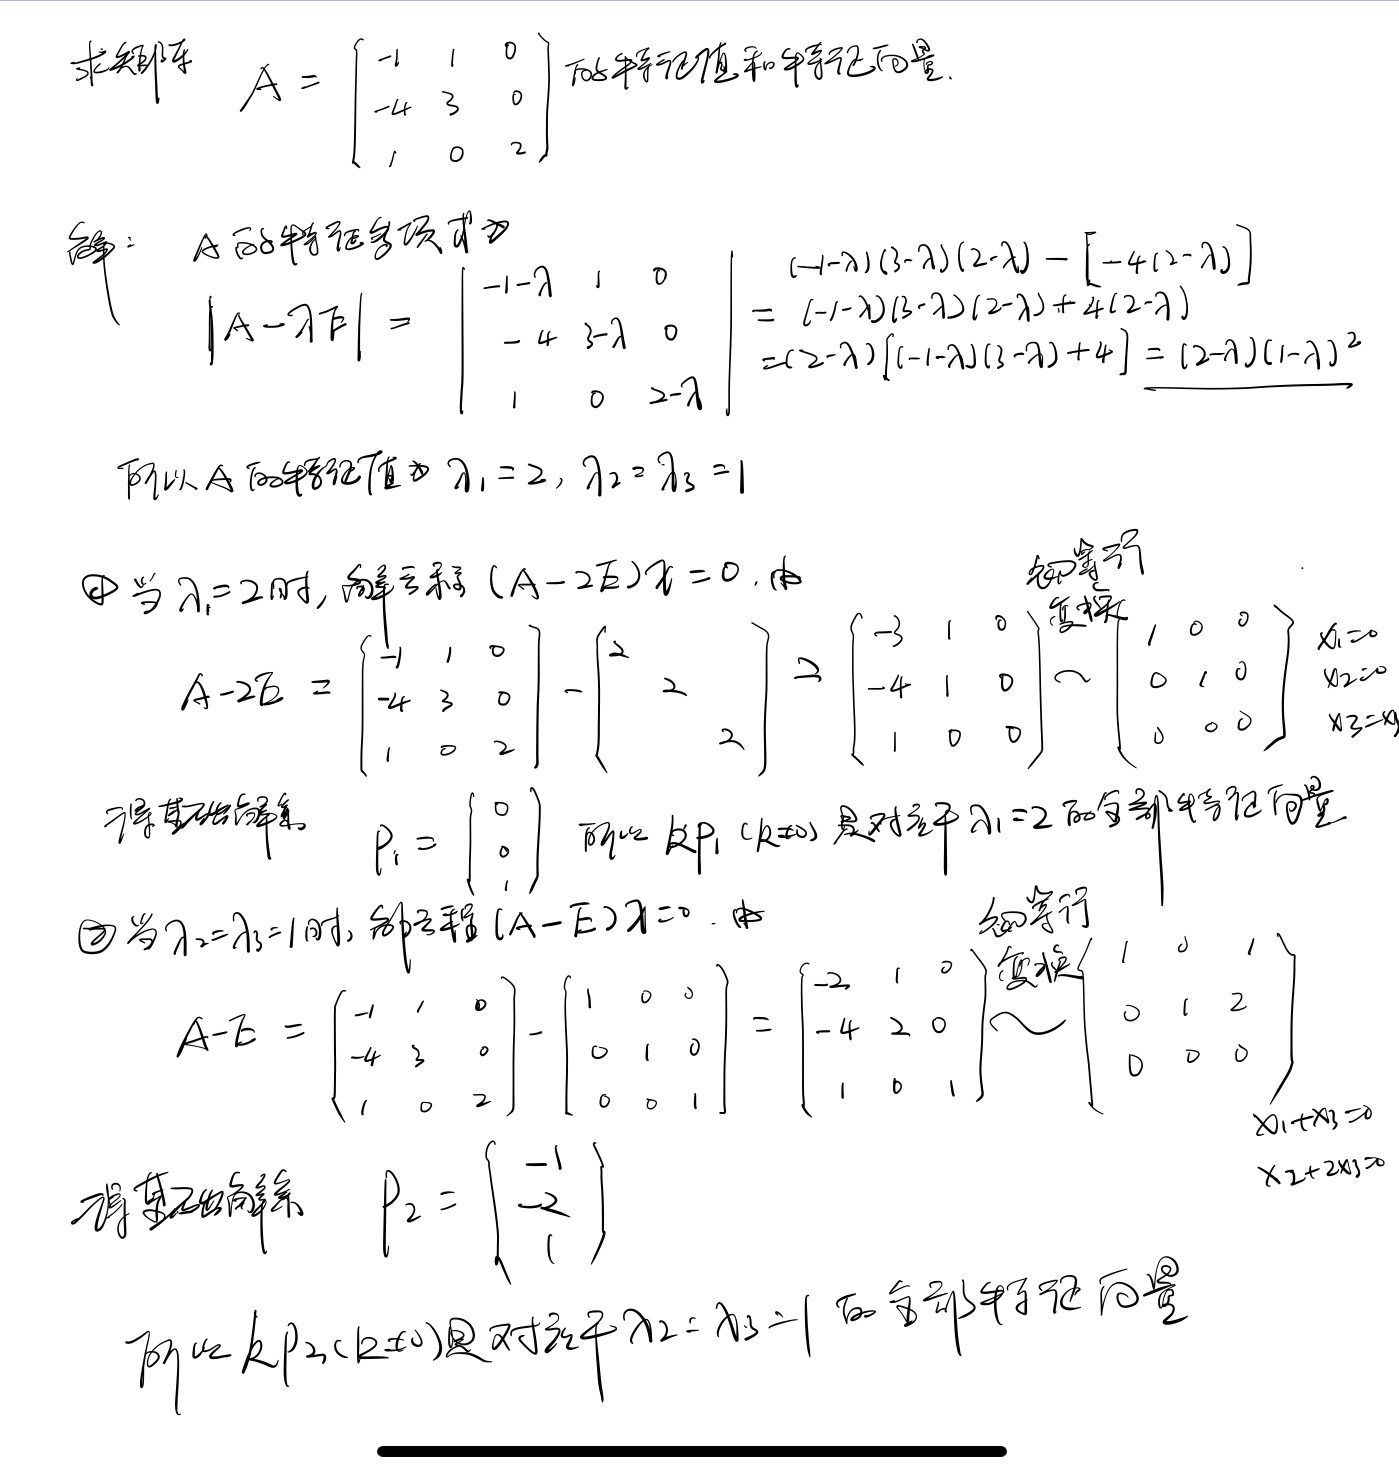 求矩阵 A = [ -1 1 0 ; -4 3 0 ; 1 0 2 ] 的特征值和特征向量.
解: A的特征多项式为
|A-λE| = | -1-λ 1 0 ; -4 3-λ 0 ; 1 0 2-λ | (-1-λ)(3-λ)(2-λ) - [-4(2-λ)]
= (-1-λ)(3-λ)(2-λ)+4(2-λ)
=(2-λ)[(-1-λ)(3-λ)+4] = (2-λ)(1-λ)²
所以A的特征值为 λ₁=2, λ₂=λ₃=1
① 当λ₁=2时, 解方程 (A-2E)x=0. 由
初等行
变换
A-2E = [ -1 1 0 ; -4 3 0 ; 1 0 2 ] - [ 2 ; 2 ; 2 ] = [ -3 1 0 ; -4 1 0 ; 1 0 0 ] ~ [ 1 0 0 ; 0 1 0 ; 0 0 0 ]
x₁=0
x₂=0
x₃=x₃
得基础解系 p₁ = [ 0 ; 0 ; 1 ] 所以 kp₁(k≠0)是对应于λ₁=2的全部特征向量
② 当λ₂=λ₃=1时, 解方程(A-E)x=0. 由
初等行
变换
A-E = [ -1 1 0 ; -4 3 0 ; 1 0 2 ] - [ 1 0 0 ; 0 1 0 ; 0 0 1 ] = [ -2 1 0 ; -4 2 0 ; 1 0 1 ] ~ [ 1 0 1 ; 0 1 2 ; 0 0 0 ]
x₁+x₃=0
x₂+2x₃=0
得基础解系 p₂ = [ -1 ; -2 ; 1 ]
所以 kp₂(k≠0)是对应于λ₂=λ₃=1的全部特征向量